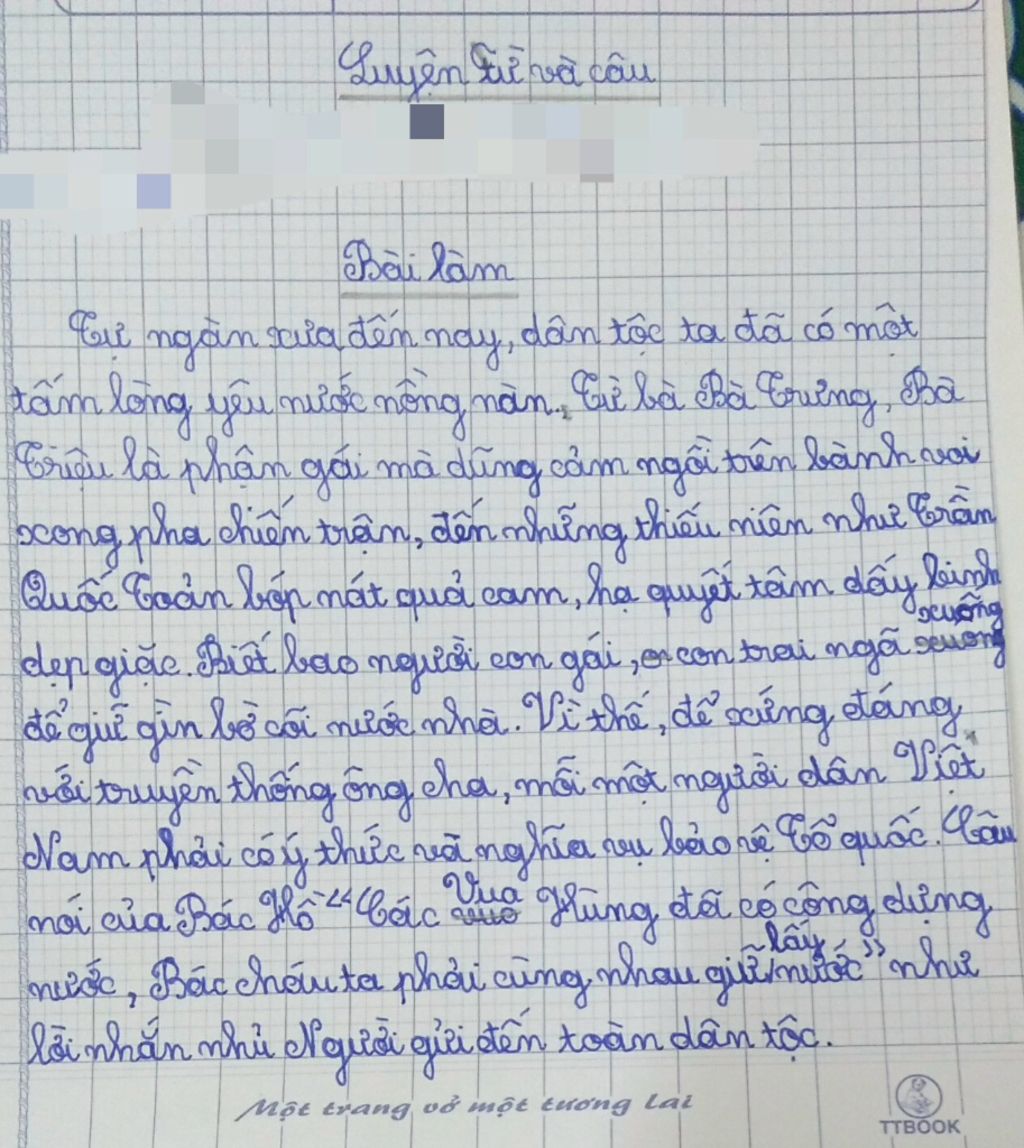 Luyện từ và câu
Bài làm
Từ ngàn xưa đến nay, dân tộc ta đã có một
tấm lòng yêu nước nồng nàn. Từ bà Bà Trưng, Bà
Triệu là phận gái mà dũng cảm ngồi trên bành voi
xông pha chiến trận, đến những thiếu niên như Trần
Quốc Toản bóp nát quả cam, hạ quyết tâm dấy binh
dẹp giặc. Biết bao người con gái, con trai ngã xuống
để giữ gìn bờ cõi nước nhà. Vì thế, để xứng đáng
với truyền thống ông cha, mỗi một người dân Việt
Nam phải có ý thức và nghĩa vụ bảo vệ Tổ quốc. Câu
nói của Bác Hồ “Các Vua Hùng đã có công dựng
nước, Bác cháu ta phải cùng nhau giữ lấy nước” như
lời nhắn nhủ Người gửi đến toàn dân tộc.
Một trang vở một tương lai
TTBOOK